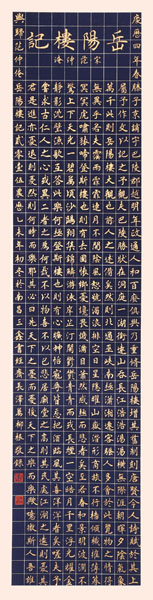 岳陽樓記
宋 范仲淹
慶曆四年春滕子京謫守巴陵郡越明年政通人和百廢俱興乃重修岳陽樓增其舊制刻唐賢今人詩賦於其上
屬予作文以記之予觀夫巴陵勝狀在洞庭一湖銜遠山吞長江浩浩湯湯橫無際涯朝暉夕陰氣象
萬千此則岳陽樓之大觀也前人之述備矣然則北通巫峽南極瀟湘遷客騷人多會於此覽物之情得
無異乎若夫霪雨霏霏連月不開陰風怒號濁浪排空日星隱耀山岳潛形商旅不行檣傾楫摧薄暮
冥冥虎嘯猿啼登斯樓也則有去國懷鄉憂讒畏譏滿目蕭然感極而悲者矣至若春和景明波瀾不
驚上下天光一碧萬頃沙鷗翔集錦鱗游泳岸芷汀蘭郁郁青青而或長煙一空皓月千里浮光躍金
靜影沉璧漁歌互答此樂何極登斯樓也則有心曠神怡寵辱皆忘把酒臨風其喜洋洋者矣嗟夫予
嘗求古仁人之心或異二者之為何哉不以物喜不以己悲居廟堂之高則憂其民處江湖之遠則憂其
君是進亦憂退亦憂然則何時而樂耶其必曰先天下之憂而憂後天下之樂而樂歟噫微斯人吾誰
與歸 范仲淹岳陽樓記 年初冬於南昌三鑫書 林敬錄